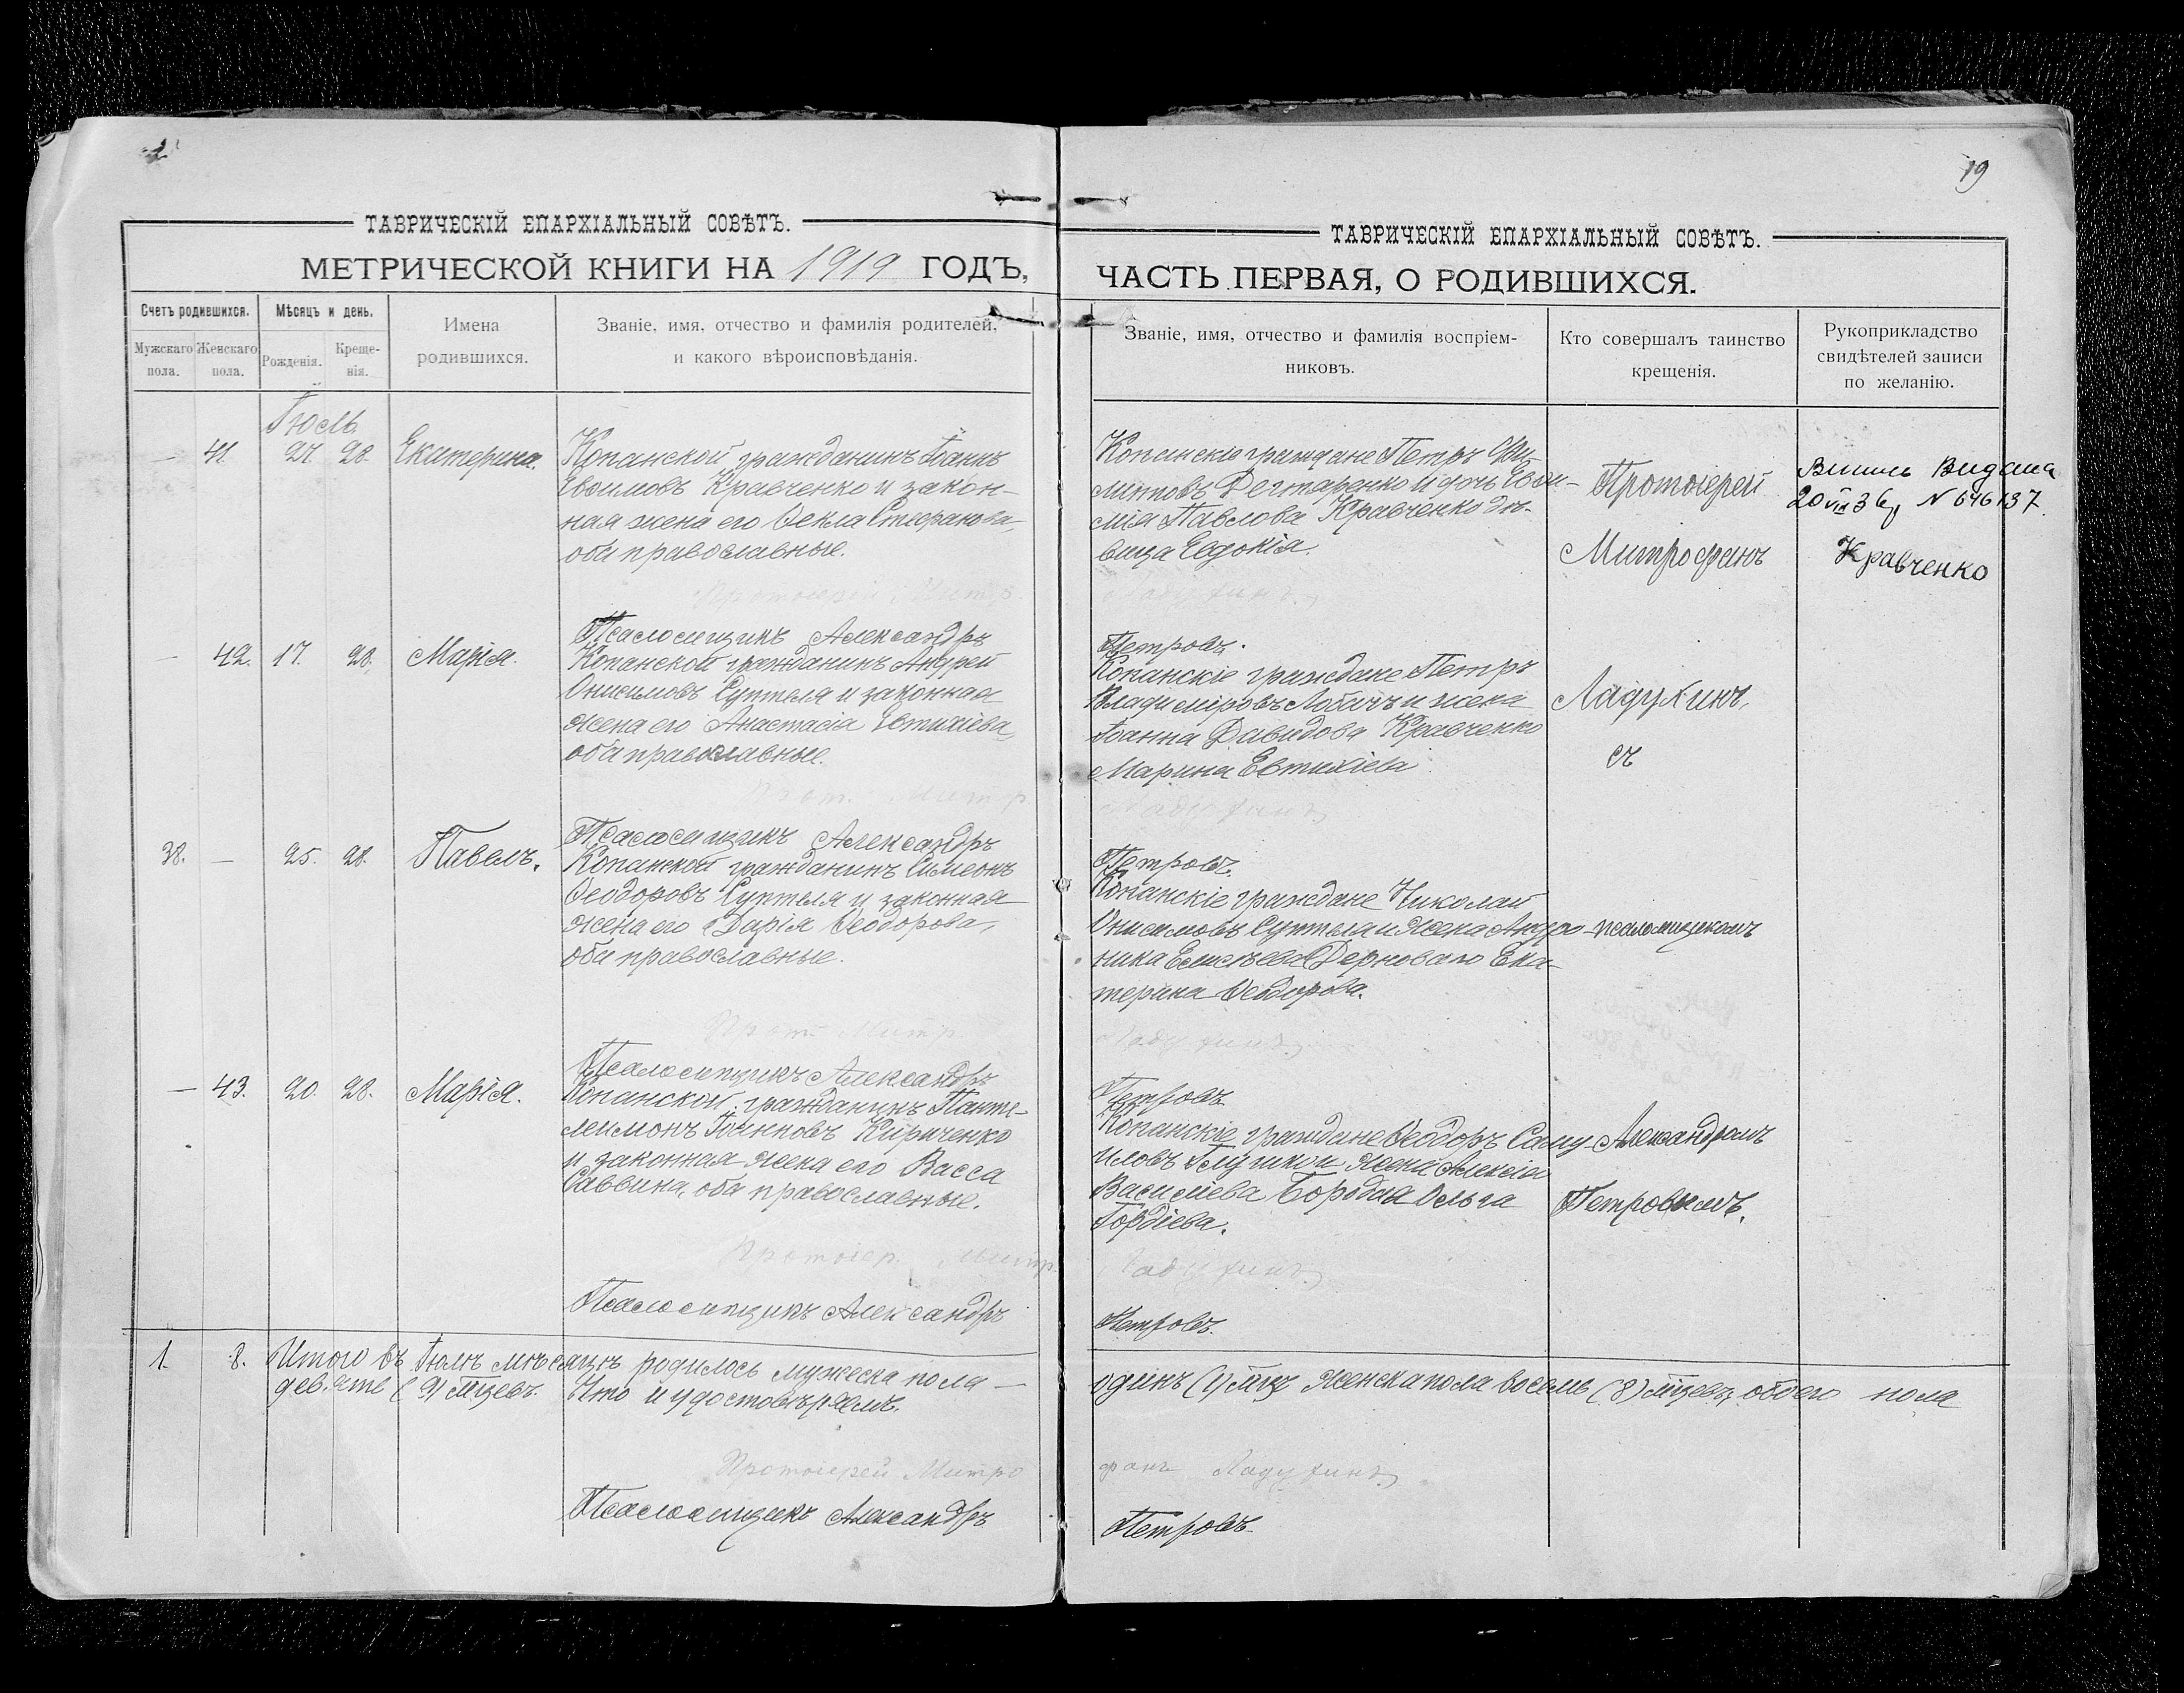 19
ТАВРИЧЕСКІЙ ЕПАРХІАЛЬНЫЙ СОВѢТЪ.
МЕТРИЧЕСКОЙ КНИГИ НА 1919 ГОДЪ,
Счетъ родившихся.
Мѣсяцъ и день.
Имена
родившихся.
Званіе, имя, отчество и фамилія родителей,
и какого вѣроисповѣданія.
Мужскаго
пола.
Женскаго
пола.
Рожденія.
Креще-
нія.
ТАВРИЧЕСКІЙ ЕПАРХІАЛЬНЫЙ СОВѢТЪ.
ЧАСТЬ ПЕРВАЯ, О РОДИВШИХСЯ.
Званіе, имя, отчество и фамилія воспріем-
никовъ.
Кто совершалъ таинство
крещенія.
Рукоприкладство
свидѣтелей записи
по желанію.
Іюль.
— 41. 27. 28. Екатерина.
Копанской гражданинъ Іоаннъ
Кравченко и закон-
ная жена его Ѳекла Стефанова,
оба православные.
Протоіерей Митр.
Псаломщикъ Александръ
Копанскіе граждане Петръ
Дегтаренко и дочь
Павлова Кравченко дѣ-
вица Евдокія.
Ладухинъ
Петровъ.
Протоіерей
Митрофанъ
Ладухинъ,
съ
псаломщикомъ
Александромъ
Петровымъ.
Видана
20 VIII 36 N 646137
Кравченко
— 42. 17. 28. Марія.
Копанской гражданинъ Андрей
Онисимовъ Суптеля и законная
жена его Анастасія Евтихіева,
оба православные.
Прот. Митр
Псаломщикъ Александръ
Копанскіе граждане Петръ
Владиміровъ Лобачъ и жена
Іоанна Давидова Кравченко
Марина Евтихіева
Ладухинъ
Петровъ.
38. — 25. 28. Павелъ.
Копанской гражданинъ Симеонъ
Ѳеодоровъ Суптеля и законная
жена его Дарія Ѳеодорова,
оба православные.
Прот. Митр.
Псаломщикъ Александръ
Копанскіе граждане Николай
Онисимовъ Суптела и жена Андро-
ника Елисѣева Дерноваго Ека-
терина Ѳеодорова.
Ладухинъ
Петровъ
— 43. 20. 28. Марія.
Копанской гражданинъ Панте-
леимонъ Іоанновъ Кириченко
и законная жена его Васса
Саввина, оба православные.
Протоіер. Митр.
Псаломщикъ Александръ
Копанскіе граждане Ѳеодоръ Саму-
иловъ Глушко и жена Алексія
Василіева Бородая Ольга
Гордіева.
Ладухинъ
Петровъ.
1. 8. Итого въ Іюлѣ мѣсяцѣ родилось мужеска пола —
одинъ (1) млц женска пола восемь (8) млцевъ, обоего пола
девять (9) млцевъ. Что и удостовѣряемъ.
Протоіерей Митро
фанъ Ладухинъ
Псаломщикъ Александръ
Петровъ.